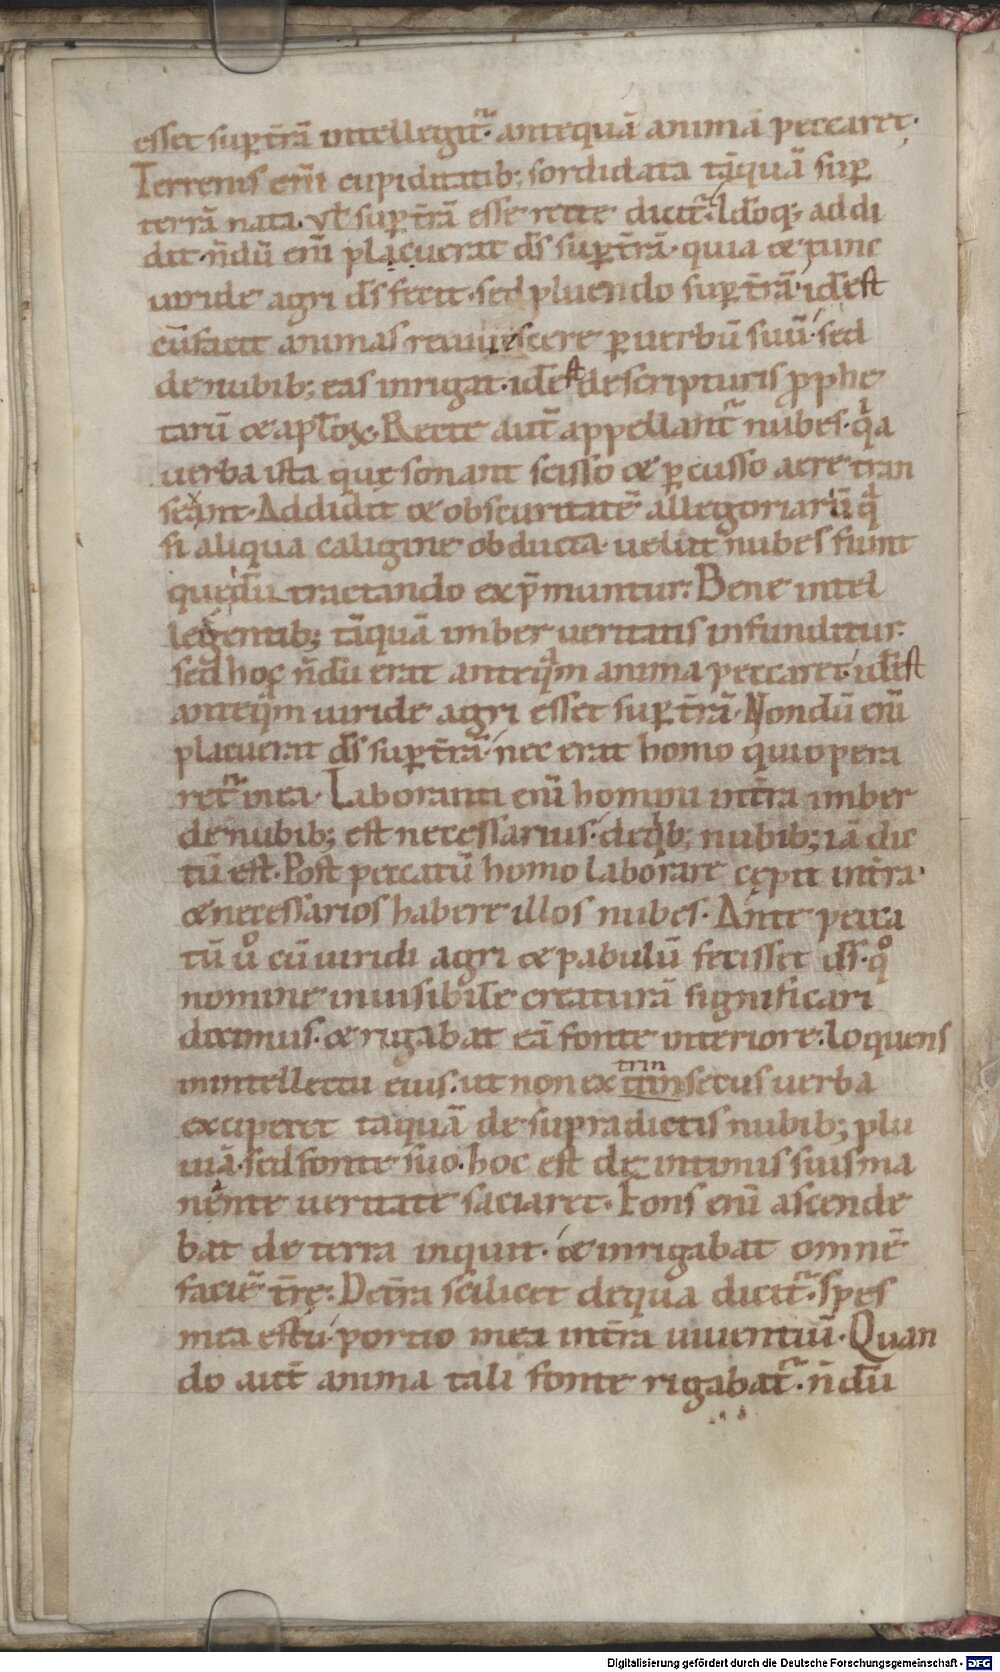 esset sup̱ t̄rā intellegit᷑. antequā animā peccaret.
Terrenis eni̅ cupiditatib; sordidata tāquā sup̱
terrā nata. vł sup̱ t̄rā esse recte dicit᷑. Idoq; addi
dit. n̄dū eni̅ placuerat d̄s sup̱ t̄rā. quia & tunc
uiride agri d̄s fecit. sed pluendo sup̱ t̄rā. id̄est
cū facit animas reuiuiscere p̱ uerbū suū. sed
de nubib; eas inrigat. id̄est de scripturis p̱phe
tarū & apl̄oꝝ. Recte aut̄ appellant᷑ nubes. qͥa
uerba ista que sonant scisso & p̱cusso aere tran
seunt. Addidit & obscuritatē allegoriarū q̄
si aliqua caligine obducta. uelut nubes fiunt
quedū tractando exp̄muntur. Bene intel
legentib; tāquā imber ueritatis infunditur.
sed hoc n̄dū erat anteqͣm anima peccaret. id̄est
anteqͣm uiride agri esset sup̱ t̄rā. Nondū eni̅
placuerat d̄s sup̱ t̄rā. nec erat homo qui opera
ret᷑ in ea. Laboranti eni̅ homini in t̄ra imber
de nubib; est necessarius. de qͥb; nubib; iā dic
tū est. Post peccatū homo laborare cępit in t̄ra.
& necessarios habere illos nubes. Ante pecca
tū ůo cū uiridi agri & pabulū fecisset d̄s. qͦ
nomine inuisibile creaturā significari
diximus. & rigabat eā fonte interiore. loquens
in intellectu eius. ut non extrinsecus uerba
trin
exciperet taquā de supradictis nubib; plu
uiā. sed fonte suo. hoc est de intimis suis ma
nante ueritate saciaret. Fons eni̅ ascende
bat de terra inquit. & inrigabat omnē
faciē t̄re. De t̄ra scilicet de qua dicit᷑. spes
mea es tu. portio mea in t̄ra uiuentiū. Quan
do aut̄ anima tali fonte rigabat᷑. n̄dū
Digitalisierung gefördert durch die Deutsche Forschungsgemeinschaft - DFG